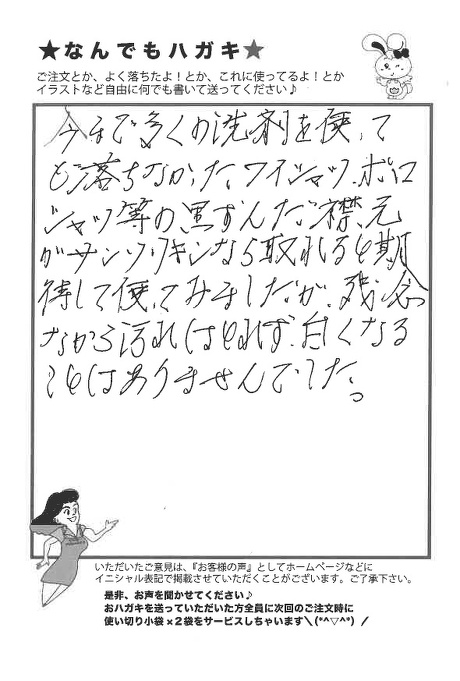 ★なんでもハガキ★
ご注文とか、よく落ちたよ！とか、これに使ってるよ！とか
イラストなど自由に何でも書いて送ってください♪
今まで多くの洗剤を使って
も落ちなかった、ワイシャツ、ポロ
シャツ等の黒ずんだ襟元
がサンソリキッなら取れると期
待して使ってみましたが、残念
ながら汚れはとれず、白くなる
ことはありませんでした。
いただいたご意見は、『お客様の声』としてホームページなどに
イニシャル表記で掲載させていただくことがございます。ご了承下さい。
是非、お声を聞かせてください♪
おハガキを送っていただいた方全員に次回のご注文時に
使い切り小袋×2袋をサービスしちゃいます＼(*^▽^*)／